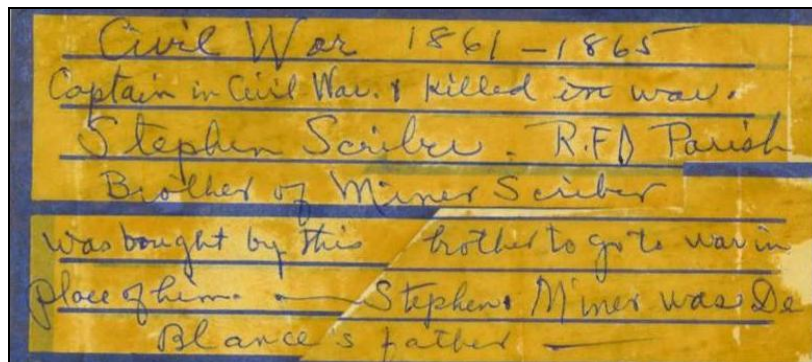 Civil War 1861-1865
Captain in Civil War. & killed in war.
Stephen Scriber. R.F.D Parish
Brother of Miner Scriber
was bought by this brother to go to war in
place of him. — Stephen. Miner was De
Blance's father —